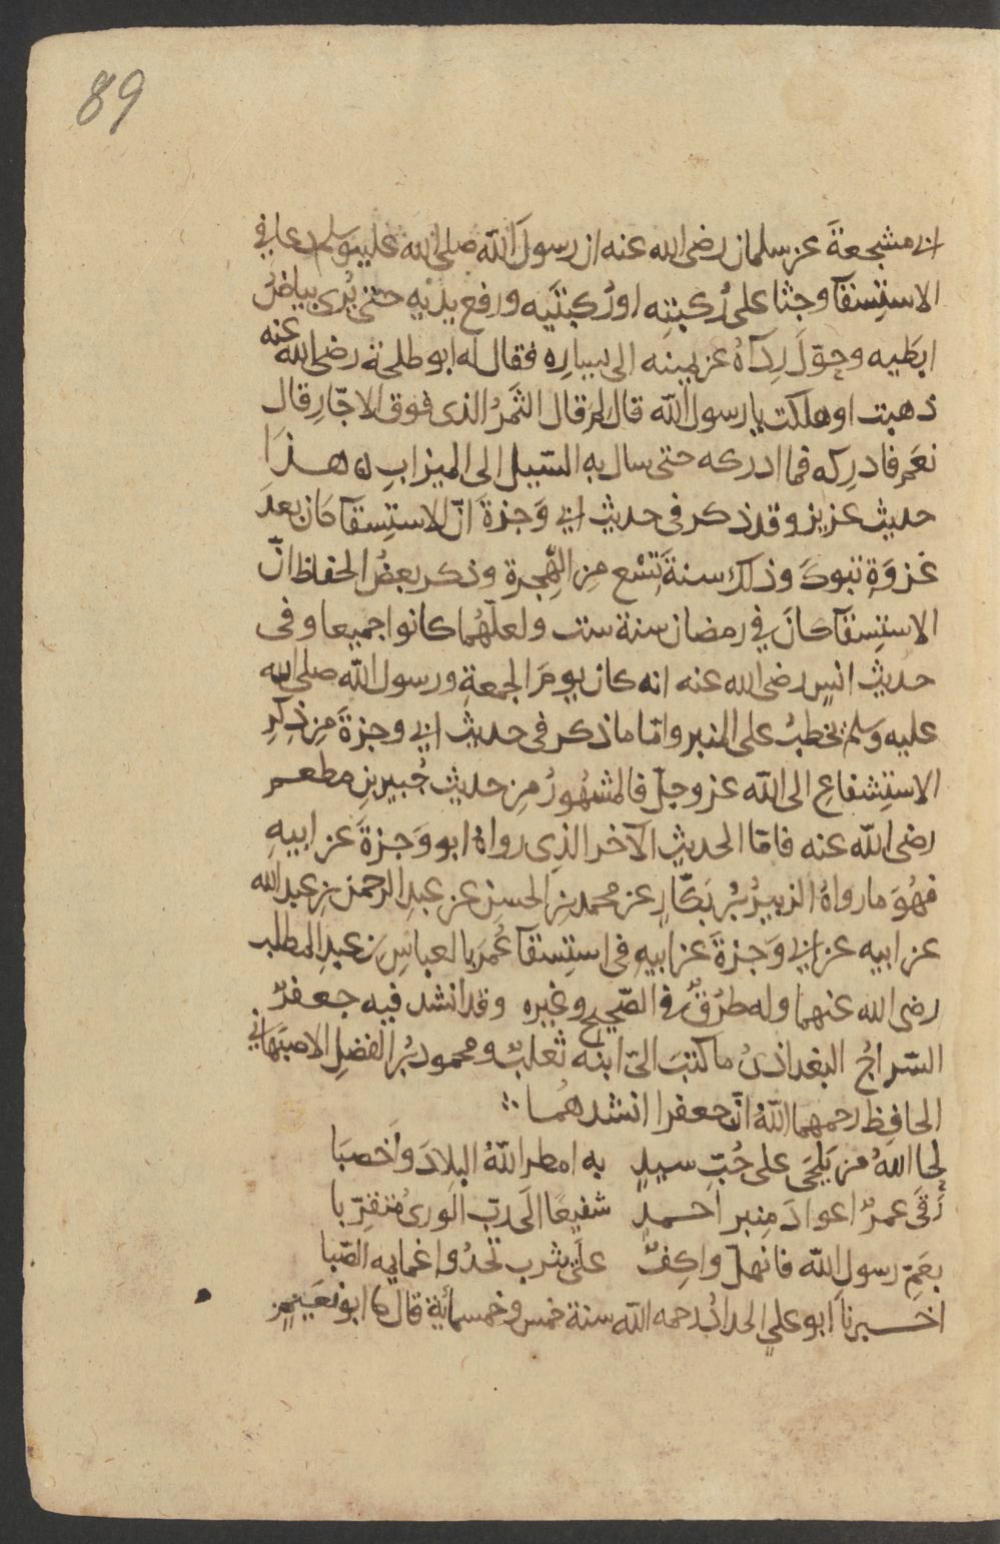 89
ابي مشجعة عن سلمان رضى الله عنه ان رسول الله صلى الله عليه وسلم دعا في
الاستسقآ وجثا على ركبته او ركبتيه ورفع يديه حتى يُرى بياض
ابطيه وحوّل رِدآهُ عن يمينه الى يساره فقال له ابو طلحة رضى الله عنه
ذهبت او هلكت يا رسول الله قال لم قال الثَّمرُ الذى فوق الاجّار قال
نعم فادركه فما ادركه حتى سال به السّيل الى الميزاب ه هذا
حديث عزيز وقد ذكر فى حديث ابي وَجزةَ انّ الاستسقآ كان بعد
غزوة تبوك وذلك سنة تسْع مِن الهِجرة وذكر بعضُ الحفاظ انّ
الاستِسقآ كانَ في رمضان سنة ست ولعلّهُما كانوا جميعا وفى
حديث انسٍ رضى الله عنه انه كان يومَ الجمعةِ ورسول الله صلى الله
عليه وسلم يخطبُ على المنبر وامّا ما ذكر فى حديث ابي وجزةَ مِن ذِكرِ
الاستِشفاعِ الى الله عز وجلّ فالمشهُورُ مِن حديث جُبير بنِ مطعم
رضى الله عنه فامّا الحديث الآخر الذِى رواهُ ابو وَجزةَ عن ابيهِ
فهُوَ ما رواهُ الزبيرُ بْنُ بَكّارٍ عن محمد بنِ الحسن عن عبدِ الرحمن بنِ عبد الله
عن ابيه عن ابي وَجزةَ عن ابيهِ فى استِسقآ عُمرَ بالعباسِ بن عبدِ المطلب
رضى الله عنهما وله طرُقٌ فى الصّحيح وغيره وقد انشد فيه جعفرٌ
السّراجُ البغداذىُّ ما كتبَ الىّ ابنه ثعلبٌ ومحمود بْنُ الفضلِ الاصبهانى
الحافِظ رحمهما اللهُ انّ جعفرا انشدهُما
لحا اللهُ من يَلحَى على حُبّ سيدٍ به امطر اللهُ البلادَ وَاَخصبَا
رَقَى عمرٌ اعوادَ مِنبر احمدٍ شفيعًا الى ربّ الورى مُتقرّبا
بعَمّ رسولِ الله فانهلّ واكِفٌ على يثرب تحدُوا غمايمه الصّبا
اخبرنا ابو علي الحدادُ رحمه الله سنة خمس وخمسمأية قال نا ابو نعَيم